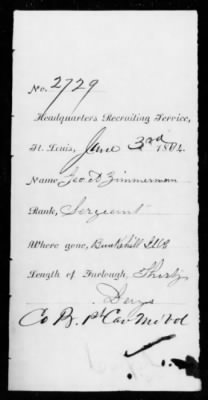 No. 2729
Headquarters Recruiting Service,
St. Louis, June 3rd 1864.
Name, Geo A Zimmerman
Rank, Sergeant
Where gone, Bunkehill Ills
Length of Furlough, Thirty
Days
Co B. 1st Cav Mi Vol